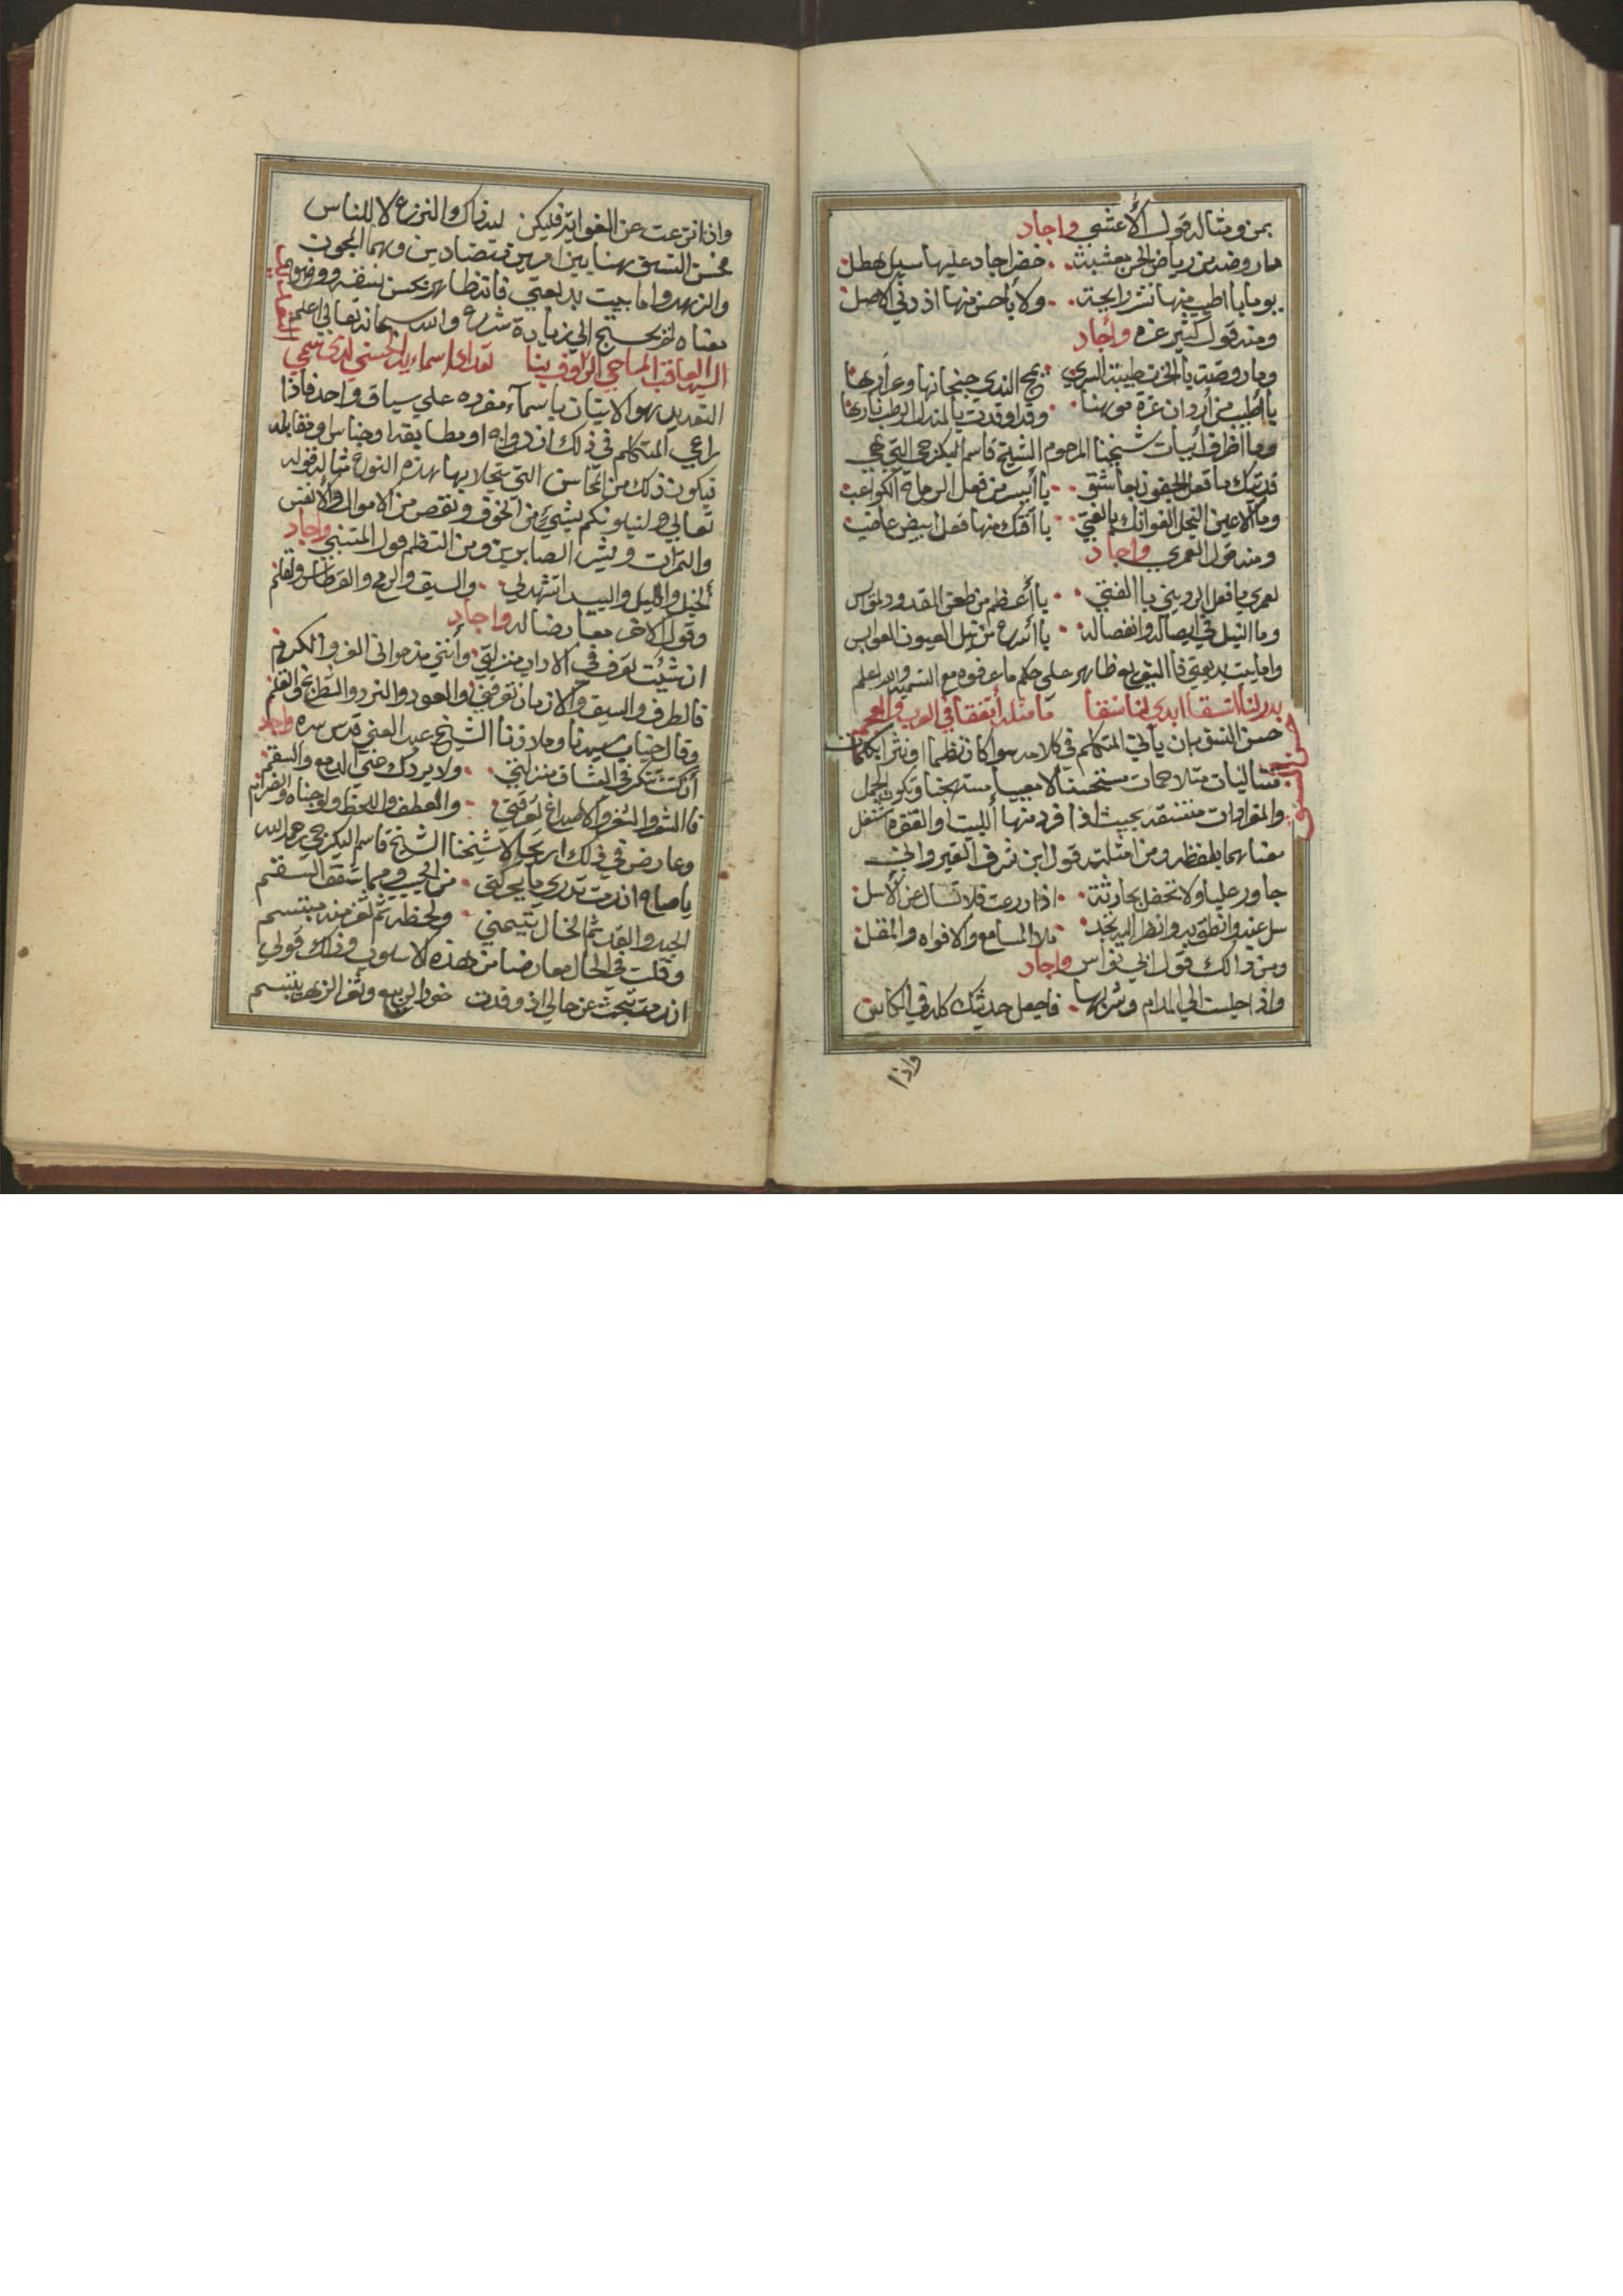 بمن ومثاله قول الأعشي واجاد
ما روضة من رياض الحزن معشبة خضرا جاد عليها سيل هطل
يوما باا طيب منها نشر رايحة ولا باحسن منها اذ دني الاصل
ومنه قول كثير عزه وأجاد
وما روضة باالحزن طيبة الثري يمج الندي جنجاثها وعرارها
باأطيب من أردان عزة موهنا وقد اوقدت باالمندل الرطب نارها
وما اظرف أبيات شيخنا المرحوم الشيخ قاسم البكرجي التي هي
فديتك ما فعل الجفون بعاشق باأيسر من فعل الرماة الكواعب
وما الاعين النجل الفواتك باالفتي باأفتك منها فعل ابيض عاضب
ومنه قول العمري واجاد
لعمري ما فعل الرديني باالفتي باأعظم من طعن القدود
وما النبل في ايصاله وانفصاله باأسرع من نبل العيون
واما بيت بديعيتي فاالتفريع ظاهر علي حكم ما عرفوه مع التسمية والله اعلم
بدر لنا اتسقا ابدي لنا نسقا ما مثله أتفقا في العرب والعجم
حسن النسق
حسن النسق بان يأتي المتكلم في كلامه سوا كان نظما او نثرا بكلمات
متتاليات متلاحمات مستحسنا لا معيبا مستهجنا وتكون الجمل
والمفرادات منتسقة بحيث اذا افرد منها البيت والفقره استقل
معناهما بلفظه ومن امثلته قول ابن شرف القيرواني
جاور عليا ولا تحفل بحادثة اذا درعت فلا تسال عن الأسل
سل عنه وانطق به وانظر اليه تجد ملا المسامع والافواه والمقل
ومن ذالك قول ابي نواس واجاد
واذا جلست الي المدام وشربها فاجعل حديثك كله في الكاس
واذا
واذا نزعت عن الغواية فليكن لله ذاك والنزع لا للناس
فحسن النسق هنا بين امرين متضادين وهما المجون
والزهد واما بيت بديعيتي فانه ظاهر بحسن نسقه ووضوح
معناه لم يحتج الي زيادة شرع والله سبحانه تعالي اعلم
السيد العاقب الماحي الراوف بنا تعداد اسماء يه الحسني لدي
التعديد هو الاتيان باسمآء مفرده علي سياق واحد فاذا
راعي المتكلم في ذلك ازدواجا او مطابقة او جناس او مقابله
فيكون ذلك من المحاسن التي يتجلا بها هذه النوع مثاله قوله
تعالي ولنبلونكم بشيءٍ من الخوف ونقص من الاموال والأنفس
والثمرات وبشر الصابرين ومن النظم قول المتنبي واجاد
الخيل والليل والبيد اتشهد لي والسيف والرمح والقرطاس والقلم
وقول الاخر معارضا له واجاد
ان شئت تعرف في الاداب منزلتي وأنني مذ حواني العز والكرم
فالطرف والسيف والازمان تعرفني والعود والنرد والشطرنج والقلم
وقال جناب سيدنا وملاذنا الشيخ عبد الغني قدس سره واجاد
أنكنت تنكر في العشاق منزلتي ولا يردك عني الدمع والسقم
فاالشعر والثغر والاصداغ تعرفني والعطف واللحظ والوجناه والفم
وعارض في ذلك ارتجالا شيخنا الشيخ قاسم البكرجي رحمه الله
يا صاح ان رمت تدري ما يحركني من الحبيب ومما شفف السقم
الجيد والقد ثم الخال تيمني ولحظه ثم ثغر منه مبتسم
وقلت في الحال معارضا من هذه الاسلوب وذلك قولي
ان رمت تبحث عن حالي اذ وفدت خود الربيع وثغر الزهر يبتسم